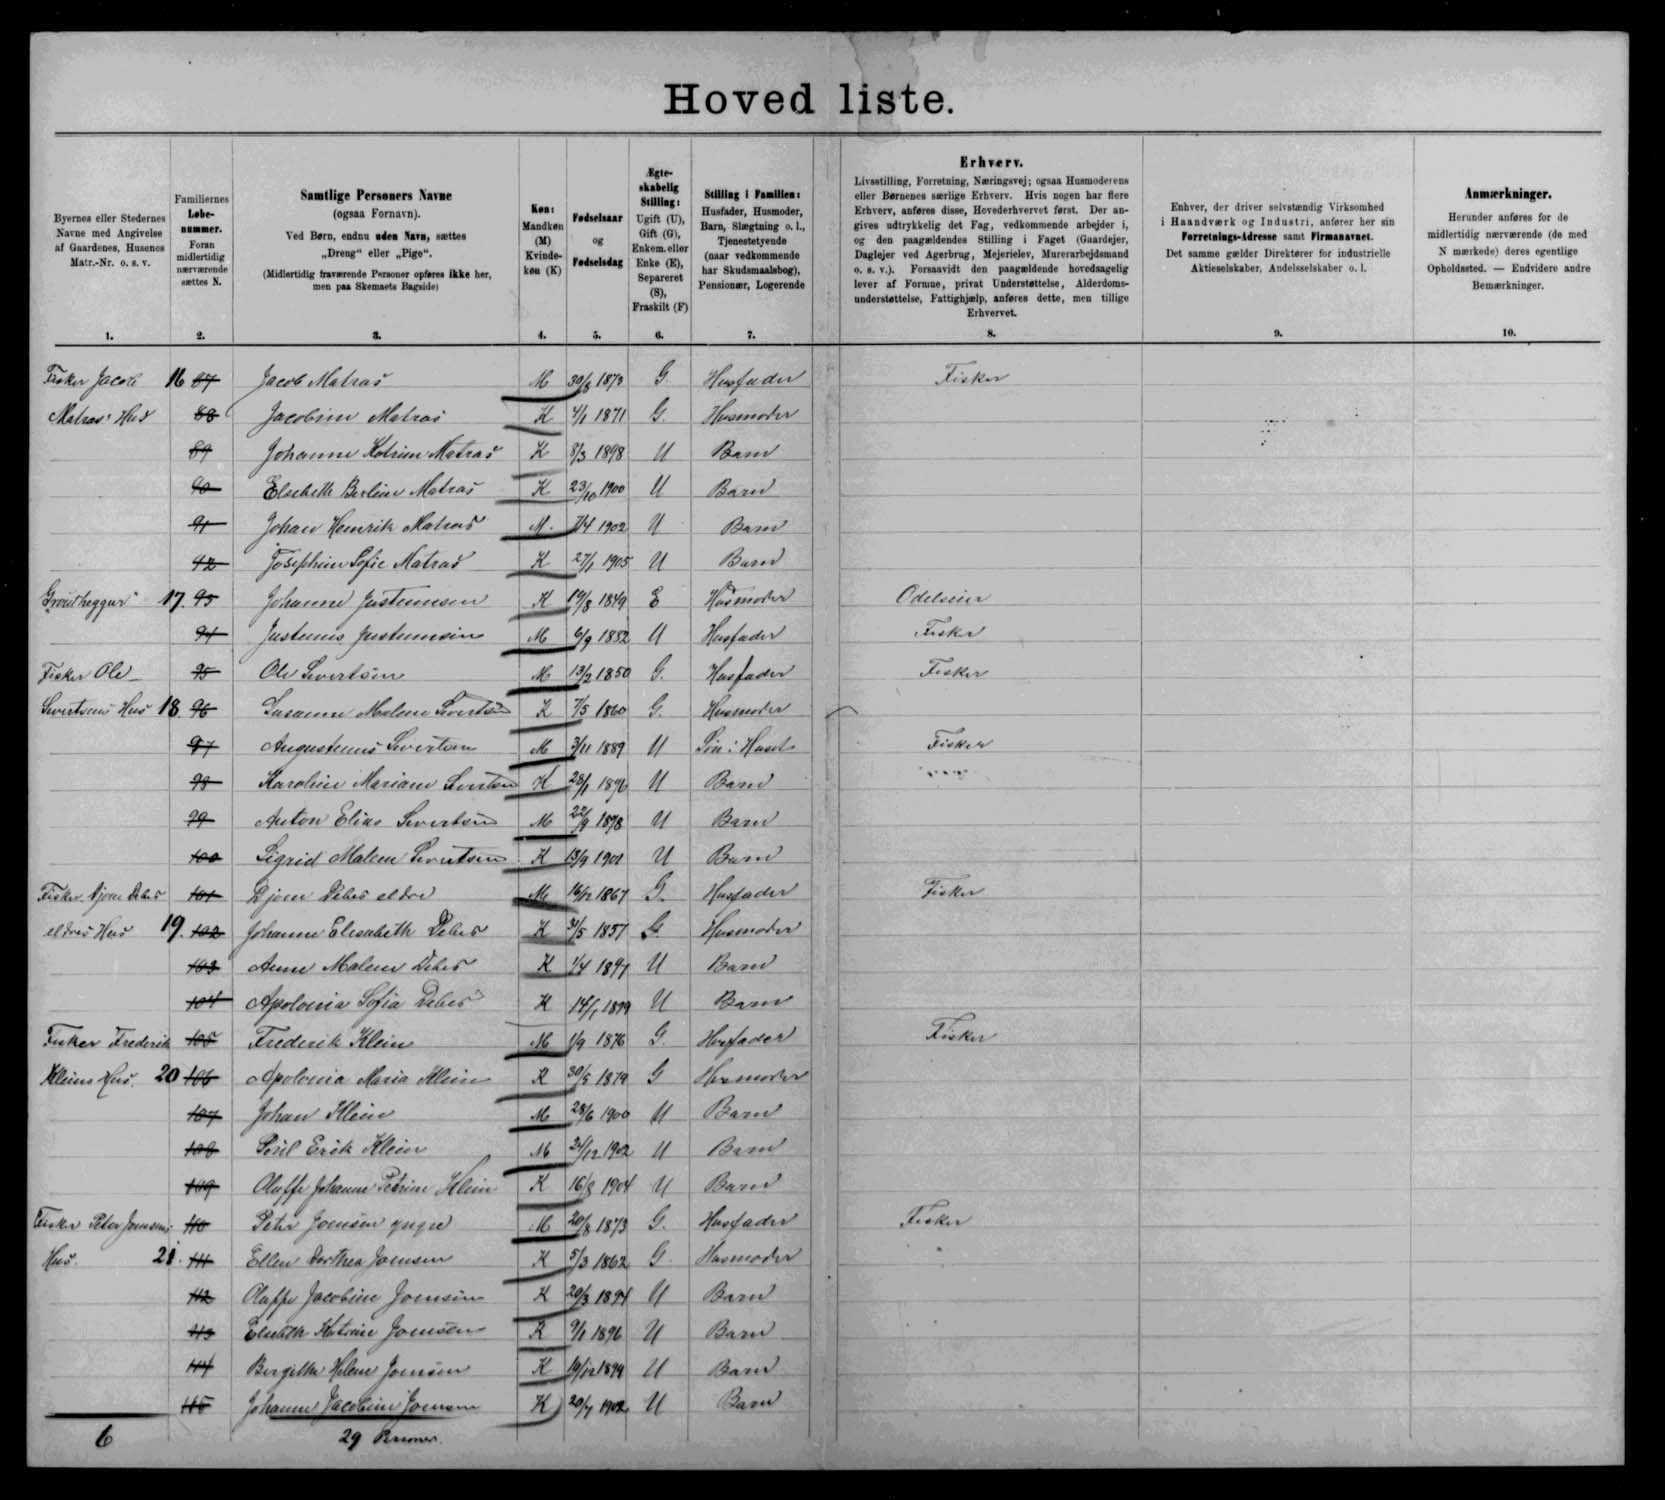 Hoved liste.
Byernes eller Stedernes
Navne med Angivelse
af Gaardenes, Husenes
Matr.-Nr. o. s. v.
1.
Familiernes
Løbe-
nummer.
Foran
midlertidig
nærværende
sættes N.
2.
Samtlige Personers Navne
(ogsaa Fornavn).
Ved Børn, endnu uden Navn, sættes
„Dreng“ eller „Pige“.
(Midlertidig fraværende Personer opføres ikke her,
men paa Skemaets Bagside)
3.
Køn:
Mandkøn
(M)
Kvinde-
køn (K)
4.
Fødselsaar
og
Fødselsdag
5.
Ægte-
skabelig
Stilling:
Ugift (U),
Gift (G),
Enkem. eller
Enke (E),
Separeret
(S),
Fraskilt (F)
6.
Stilling i Familien:
Husfader, Husmoder,
Barn, Slægtning o. l.,
Tjenestetyende
(naar vedkommende
har Skudsmaalsbog),
Pensionær, Logerende
7.
Erhverv.
Livsstilling, Forretning, Næringsvej; ogsaa Husmoderens
eller Børnenes særlige Erhverv. Hvis nogen har flere
Erhverv, anføres disse, Hovederhvervet først. Der an-
gives udtrykkelig det Fag, vedkommende arbejder i,
og den paagældendes Stilling i Faget (Gaardejer,
Daglejer ved Agerbrug, Mejerielev, Murerarbejdsmand
o. s. v.). Forsaavidt den paagældende hovedsagelig
lever af Formue, privat Understøttelse, Alderdoms-
understøttelse, Fattighjælp, anføres dette, men tillige
Erhvervet.
8.
Enhver, der driver selvstændig Virksomhed
i Haandværk og Industri, anfører her sin
Forretnings-Adresse samt Firmanavnet.
Det samme gælder Direktører for industrielle
Aktieselskaber, Andelsselskaber o. l.
9.
Anmærkninger.
Herunder anføres for de
midlertidig nærværende (de med
N mærkede) deres egentlige
Opholdssted. — Endvidere andre
Bemærkninger.
10.
Fisker Jacob 16 87 Jacob Matras M 30/8 1873 G Husfader Fisker
Matras' Hus 88 Jacobine Matras K 4/1 1871 G. Husmoder
89 Johanne Katrine Matras K 8/3 1898 U Barn
90 Elsebeth Berline Matras K 23/10 1900 U Barn
91 Johan Hemrik Matras M. 7/4 1902 U Barn
92 Josephine Sofie Matras K 27/1 1905 U Barn
17. 93 Johanne Justinussen K 19/8 1849 E Husmoder Odelseier
94 Justinus Justinussen M 6/9 1882 U Husfader Fisker
Fisker Ole 95 Ole Sivertsen M 13/2 1850 G. Husfader Fisker
Sivertsens Hus 18 96 Susanne Malene Sivertsen K 7/5 1860 G. Husmoder
97 Augustinus Sivertsen M 3/11 1889 U Søn i Huset Fisker
98 Karoline Mariane Sivertsen K 28/1 1896 U Barn
99 Anton Elias Sivertsen M 22/9 1898 U Barn
100 Sigrid Malene Sivertsen K 13/9 1901 U Barn
Fisker Djone Debes 101 Djone Debes eldre M 16/12 1867 G. Husfader Fisker
eldres Hus 19. 102 Johanne Elisabeth Debes K 31/5 1857 G. Husmoder
103 Anne Malene Debes K 1/4 1891 U Barn
104 Apolonia Sofia Debes K 14/1 1899 U Barn
Fisker Frederik 105 Frederik Klein M 1/9 1876 G. Husfader Fisker
Kleins Hus. 20 106 Apolonia Maria Klein K 30/5 1879 G Husmoder
107 Johan Klein M 28/6 1900 U Barn
108 Poul Erik Klein M 24/12 1902 U Barn
109 Oluffe Johanne Petrine Klein K 16/8 1904 U Barn
Fisker Peter Joensens 110 Peter Joensen yngre M 20/8 1873 G. Husfader Fisker
Hus. 21. 111 Ellen Dorthea Joensen K 5/3 1862 G. Husmoder
112 Oluffe Jacobine Joensen K 20/3 1894 U Barn
113 Elsebeth Katrine Joensen K 9/1 1896 U Barn
114 Birgithe Helene Joensen K 19/12 1899 U Barn
115 Johanne Jacobine Joensen K 20/7 1902 U Barn
6 29 Personer.